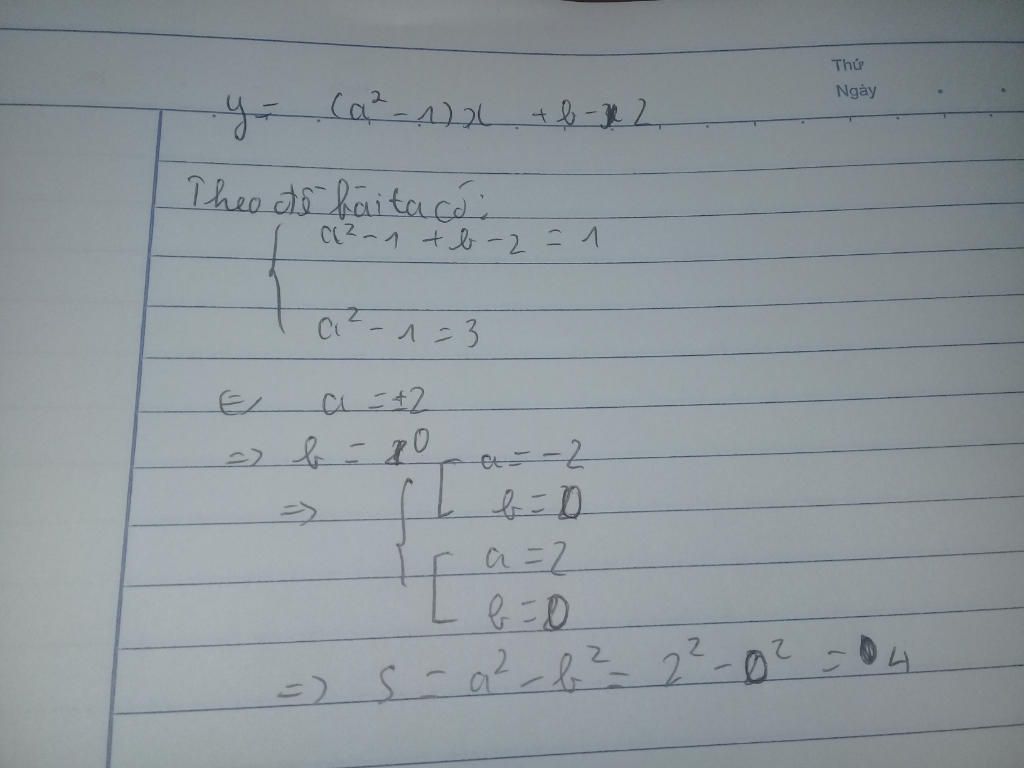 Thứ
Ngày
y = (a² - 1)x + b - 2
Theo đề bài ta có:
a² - 1 + b - 2 = 1
a² - 1 = 3
⇔ a = ±2
=> b = 0
a = -2
=> b = 0
a = 2
b = 0
=> S = a² - b² = 2² - 0² = 4